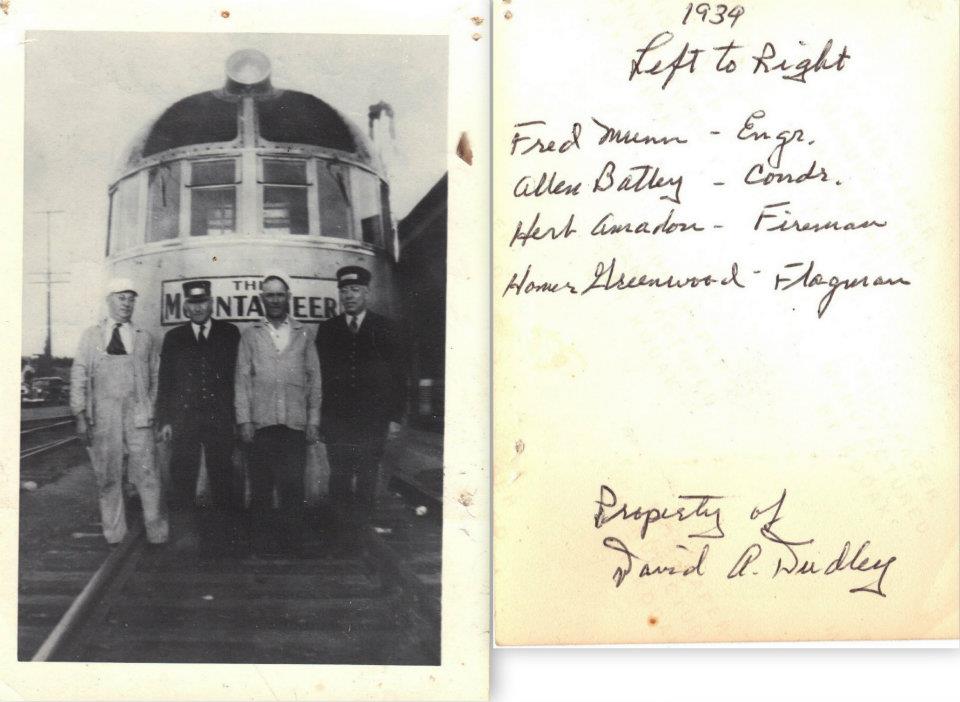 THE
MOUNTAINEER
1939
Left to Right
Fred Munn - Engr.
Allen Batley - Condr.
Herb Amadon - Fireman
Homer Greenwood - Flagman
Property of
David A. Dudley